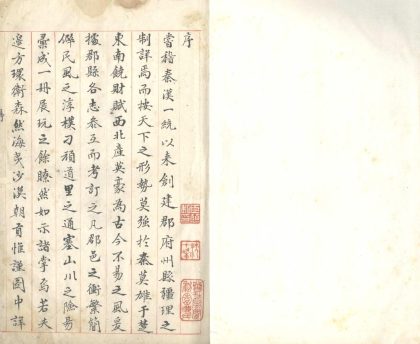 序
嘗稽秦漢一統以來創建郡府州縣疆理之
制詳焉而按天下之形勢莫強於秦莫雄于楚
東南饒財賦西北產英豪為古今不易之風爰
據郡縣各志叅互而考訂之凡郡邑之衝繁簡
僻民風之淳樸刁頑道里之通塞山川之險易
彙成一冊展玩之餘瞭然如示諸掌焉若夫
邊方環衛森然海夷沙漠朝貢惟謹圖中詳